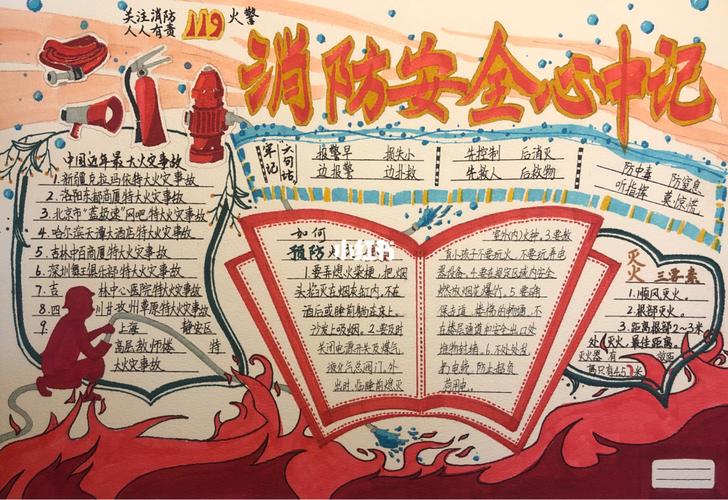 关注消防
人人有责
119
火警
消防安全心中记
中国近年最大火灾事故
1.新疆克拉玛依特大火灾事故
2.洛阳东都商厦特大火灾事故
3.北京市“蓝极速”网吧特大火灾事故
4.哈尔滨天潭大酒店特大火灾事故
5.吉林中百商厦特大火灾事故
6.深圳舞王俱乐部特大火灾事故
7.吉 林中心医院特大火灾事故
8.四 川甘孜州草原特大火灾事故
9. 上海 静安区
高层教师楼 特
大火灾事故
牢记
六句话
报警早 损失小
边报警 边扑救
先控制 后消灭
先救人 后救物
防中毒 防窒息
听指挥 莫惊慌
如何
预防
小红书
1.要弄熄火柴梗,把烟
头掐灭在烟灰缸内,不在
酒后或睡前躺在床上、
沙发上吸烟。2.要及时
关闭电源开关及煤气、
液化气总阀门,外
出时、临睡前熄灭
室外(内)火种。3.要教
育小孩子不要玩火,不要玩弄电
器设备。4.要在规定区域内安全
燃放烟花爆竹。5.要确
保走道、楼梯的物通,不
在楼层通道和安全出口处
堆物封堵。6.不处处乱
扔电线,防止超负
荷用电。
灭火
三要素
1.顺风灭火。
2.根部灭火。
3.距离根部2~3米
处灭火最佳距离。
灭火器有 效距
离只有4.5米